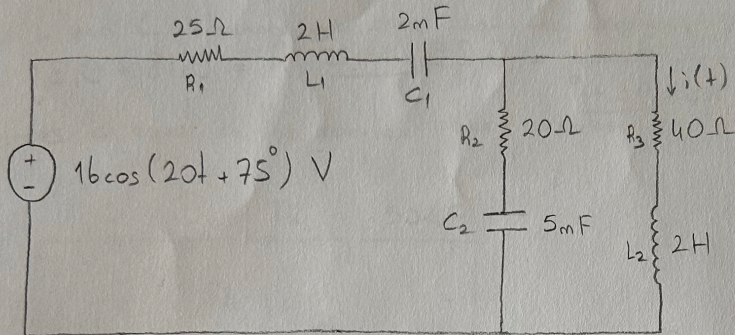 25Ω
2H
2mF
R₁
L₁
C₁
↓i(t)
R₂
20Ω
R₃
40Ω
+
-
16cos(20t + 75°) V
C₂
5mF
L₂
2H